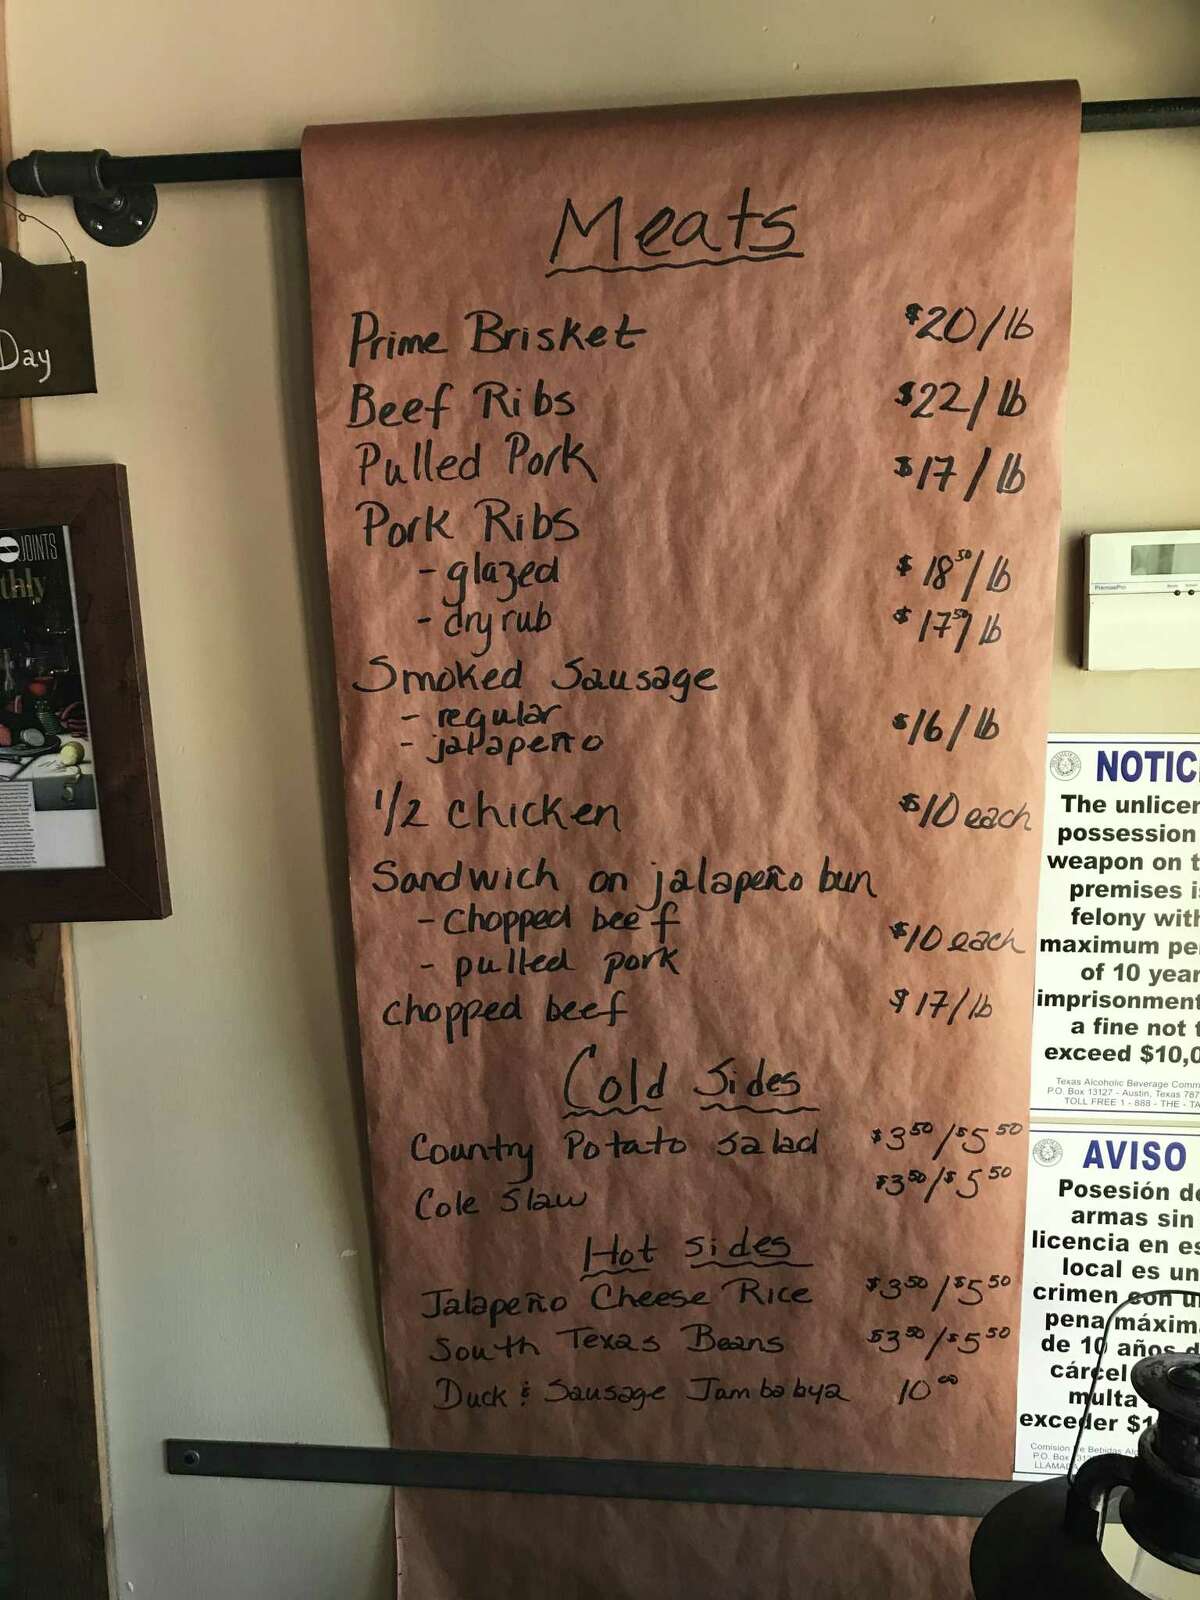 Meats
Prime Brisket $20/lb
Beef Ribs $22/lb
Pulled Pork $17/lb
Pork Ribs
- glazed $18.50/lb
- dry rub $17.50/lb
Smoked Sausage
- regular $16/lb
- jalapeño
1/2 chicken $10 each
Sandwich on jalapeño bun
- chopped beef $10 each
- pulled pork
chopped beef $17/lb
Cold Sides
Country Potato Salad $3 50/$5 50
Cole Slaw $3 50/$5 50
Hot sides
Jalapeño Cheese Rice $3 50/$5 50
South Texas Beans $3 50/$5 50
Duck & Sausage Jambabya 10 00
Day
JOINTS
thly
PremierPro
NOTIC
The unlicen
possession
weapon on t
premises is
felony with
maximum pe
of 10 year
imprisonment
a fine not t
exceed $10,0
Texas Alcoholic Beverage Comm
P.O. Box 13127 - Austin, Texas 787
TOLL FREE 1 - 888 - THE - TA
AVISO
Posesión de
armas sin
licencia en es
local es un
crimen con u
pena máxima
de 10 años d
cárcel
multa
exceder $1
Comisión De Bebidas Alc
P.O. Box
LLAMADA